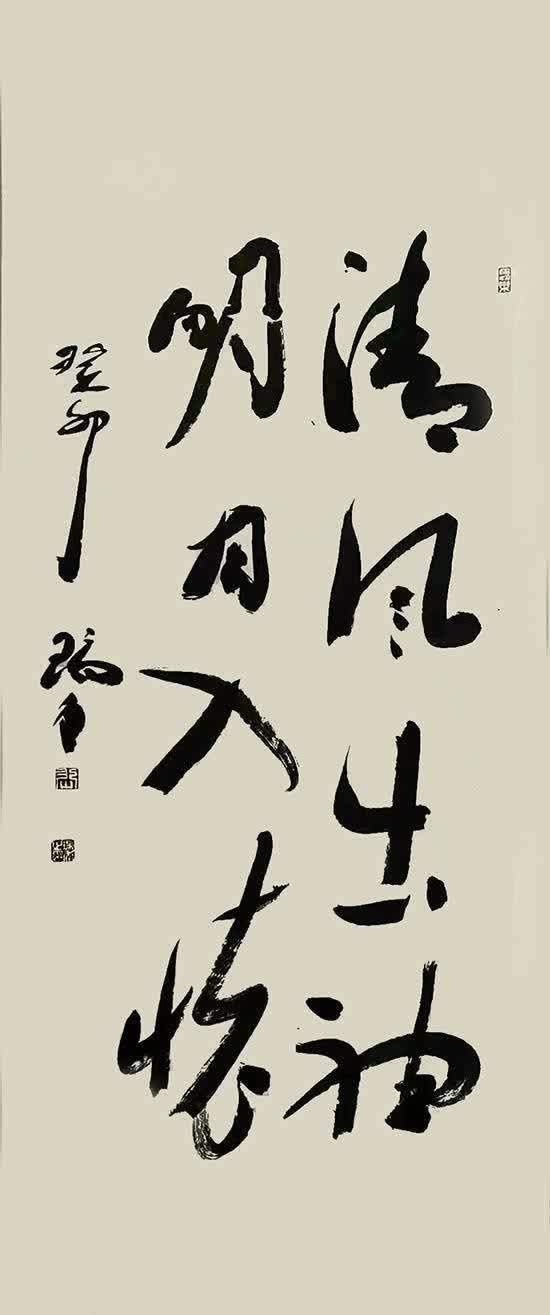 清风出袖
明月入怀
癸卯